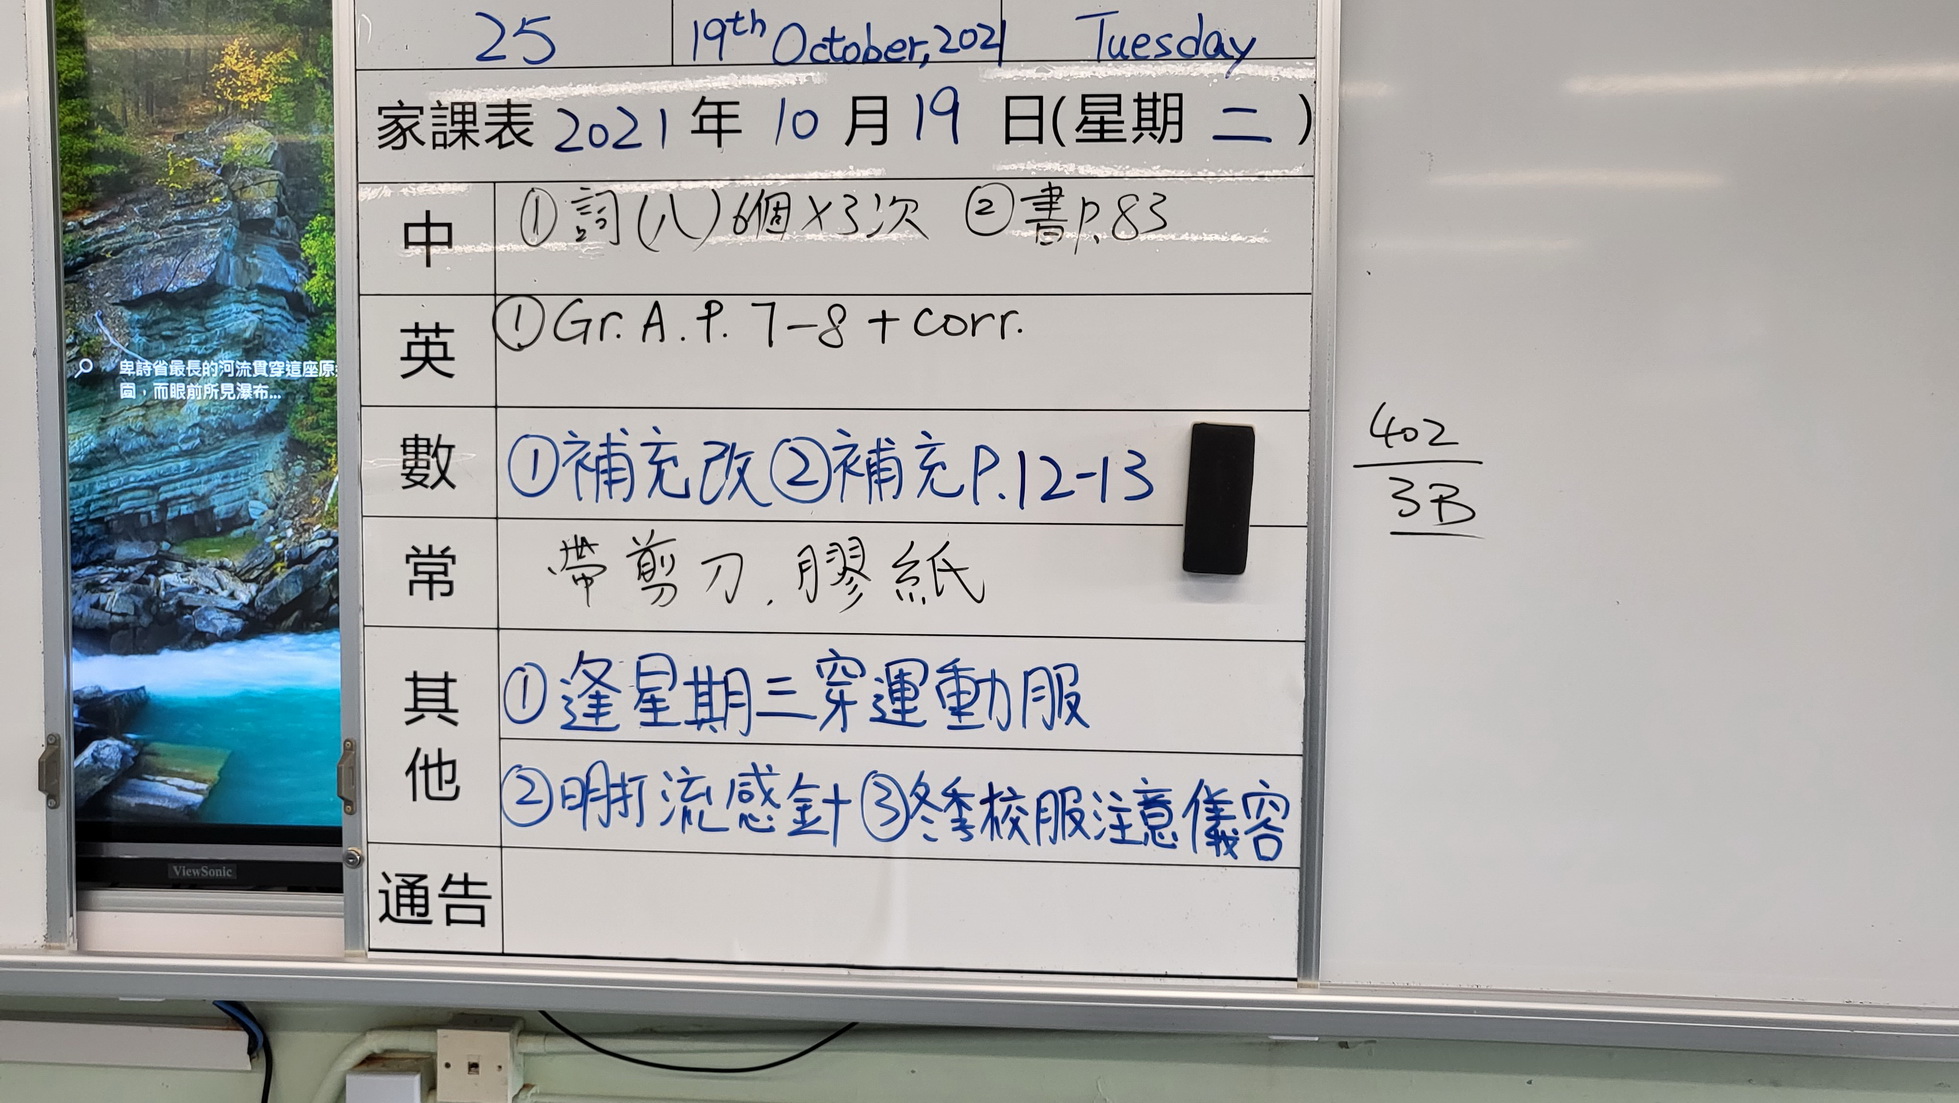 25 19th October, 2021 Tuesday
家課表 2021 年 10 月 19 日(星期 二 )
中 ①詞(八)6個×3次 ②書P.83
英 ①Gr. A. P. 7-8 + corr.
數 ①補充改②補充P.12-13
常 帶剪刀、膠紙
其他 ①逢星期三穿運動服
②明打流感針③冬季校服注意儀容
通告
卑詩省最長的河流貫穿這座原
園，而眼前所見瀑布...
ViewSonic
402
3B